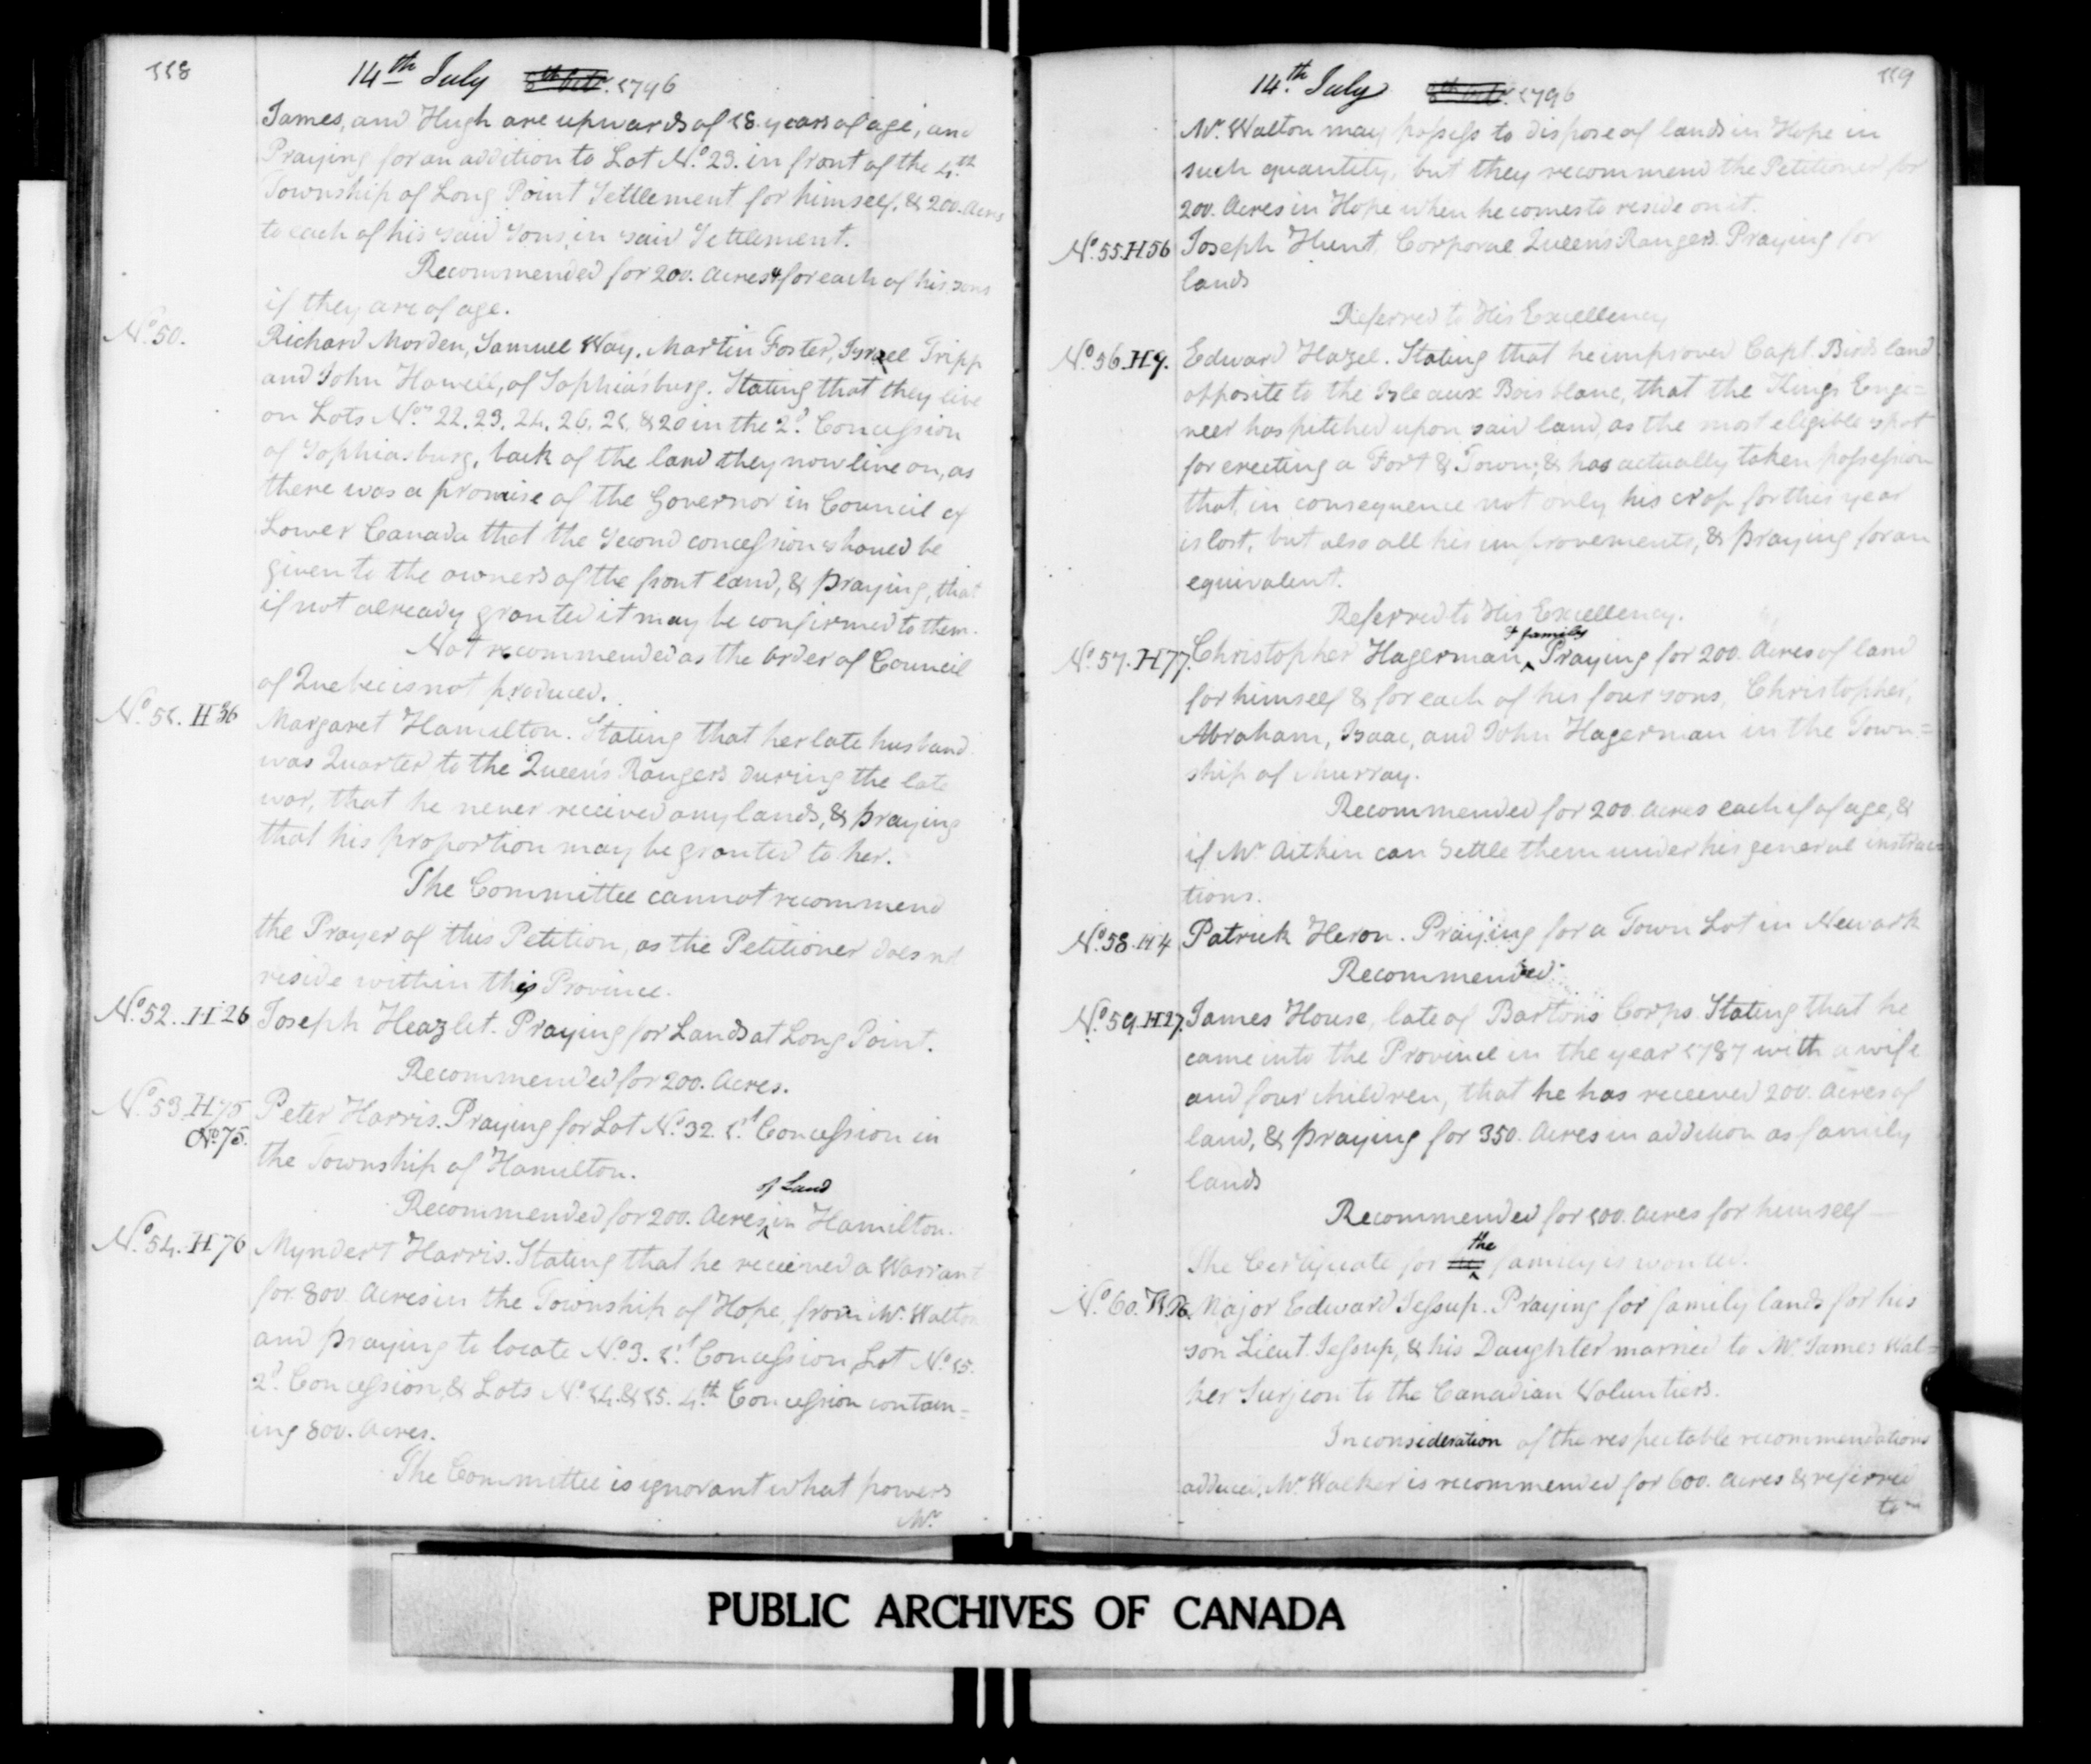 118
14th July 8th Octr. 1796
James, and Hugh are upwards of 18. years of age, and
Praying for an addition to Lot No. 23. in front of the 4th
Township of Long Point Settlement for himself, & 200. Acres
to each of his said sons, in said Settlement.
Recommended for 200. Acres & for each of his sons
if they are of age.
No. 50.
Richard Morden, Samuel Way, Martin Foster, Israel Tripp
and John Howell, of Sophiasburg. Stating that they live
on Lots Nos. 22. 23. 24. 26. 21. & 20 in the 2d. Concession
of Sophiasburg, back of the land they now live on, as
there was a promise of the Governor in Council of
Lower Canada that the Second concession should be
given to the owners of the front land, & praying, that
if not already granted it may be confirmed to them.
Not recommended as the order of Council
of Quebec is not produced.
No. 51. H 36
Margaret Hamilton. Stating that her late husband
was Quarter to the Queen's Rangers during the late
war, that he never received any lands, & praying
that his proportion may be granted to her.
The Committee cannot recommend
the Prayer of this Petition, as the Petitioner does not
reside within this Province.
No. 52. H 26
Joseph Heazlet. Praying for Lands at Long Point.
Recommended for 200. Acres.
No. 53 H 75
No. 75.
Peter Harris. Praying for Lot No. 32. 1st Concession in
the Township of Hamilton.
of Land
Recommended for 200. Acres ^ in Hamilton.
No. 54. H 76
Myndert Harris. Stating that he received a Warrant
for 800 Acres in the Township of Hope, from Mr. Walton
and praying to locate No. 3. 1st Concession, Lot No. 15.
2d. Concession, & Lots No. 14. & 15. 4th Concession contain=
ing 800. Acres.
The Committee is ignorant what powers
Mr.
119
14th. July 8th Octr. 1796
Mr. Walton may possess to dispose of lands in Hope in
such quantity, but they recommend the Petitioner for
200. Acres in Hope when he comes to reside on it.
No. 55. H 56
Joseph Hunt, Corporal Queen's Rangers. Praying for
lands
Referred to His Excellency
No. 56. H 7.
Edward Hazel. Stating that he improved Capt. Birds land
opposite to the Isle aux Bois blanc, that the King's Engi=
neer has pitched upon said land, as the most eligible spot
for erecting a Fort & Town; & has actually taken possession
that, in consequence not only his crop for this year
is lost, but also all his improvements, & praying for an
equivalent.
Referred to His Excellency.
No. 57. H 77.
& family
Christopher Hagerman, ^ Praying for 200. Acres of land
for himself & for each of his four sons, Christopher,
Abraham, Isaac, and John Hagerman in the Town=
ship of Murray.
Recommended for 200 acres each if of age, &
if Mr Aitkin can settle them under his general instruc
tions.
No. 58. H 4
Patrick Heron. Praying for a Town Lot in Newark
Recommended.
No. 59. H 27.
James House, late of Barton's Corps. Stating that he
came into the Province in the year 1787 with a wife
and four children, that he has received 200. Acres of
land, & praying for 350. Acres in addition as family
lands
Recommended for 100. acres for himself —
the
The Certificate for ^ family is wanted.
No. 60.
Major Edward Jessup. Praying for family lands for his
son Lieut. Jessup, & his Daughter married to Mr. James Wal=
ker Surjeon to the Canadian Voluntiers.
In consideration of the respectable recommendations
adduced, Mr. Walker is recommended for 600. Acres & referred
to
PUBLIC ARCHIVES OF CANADA